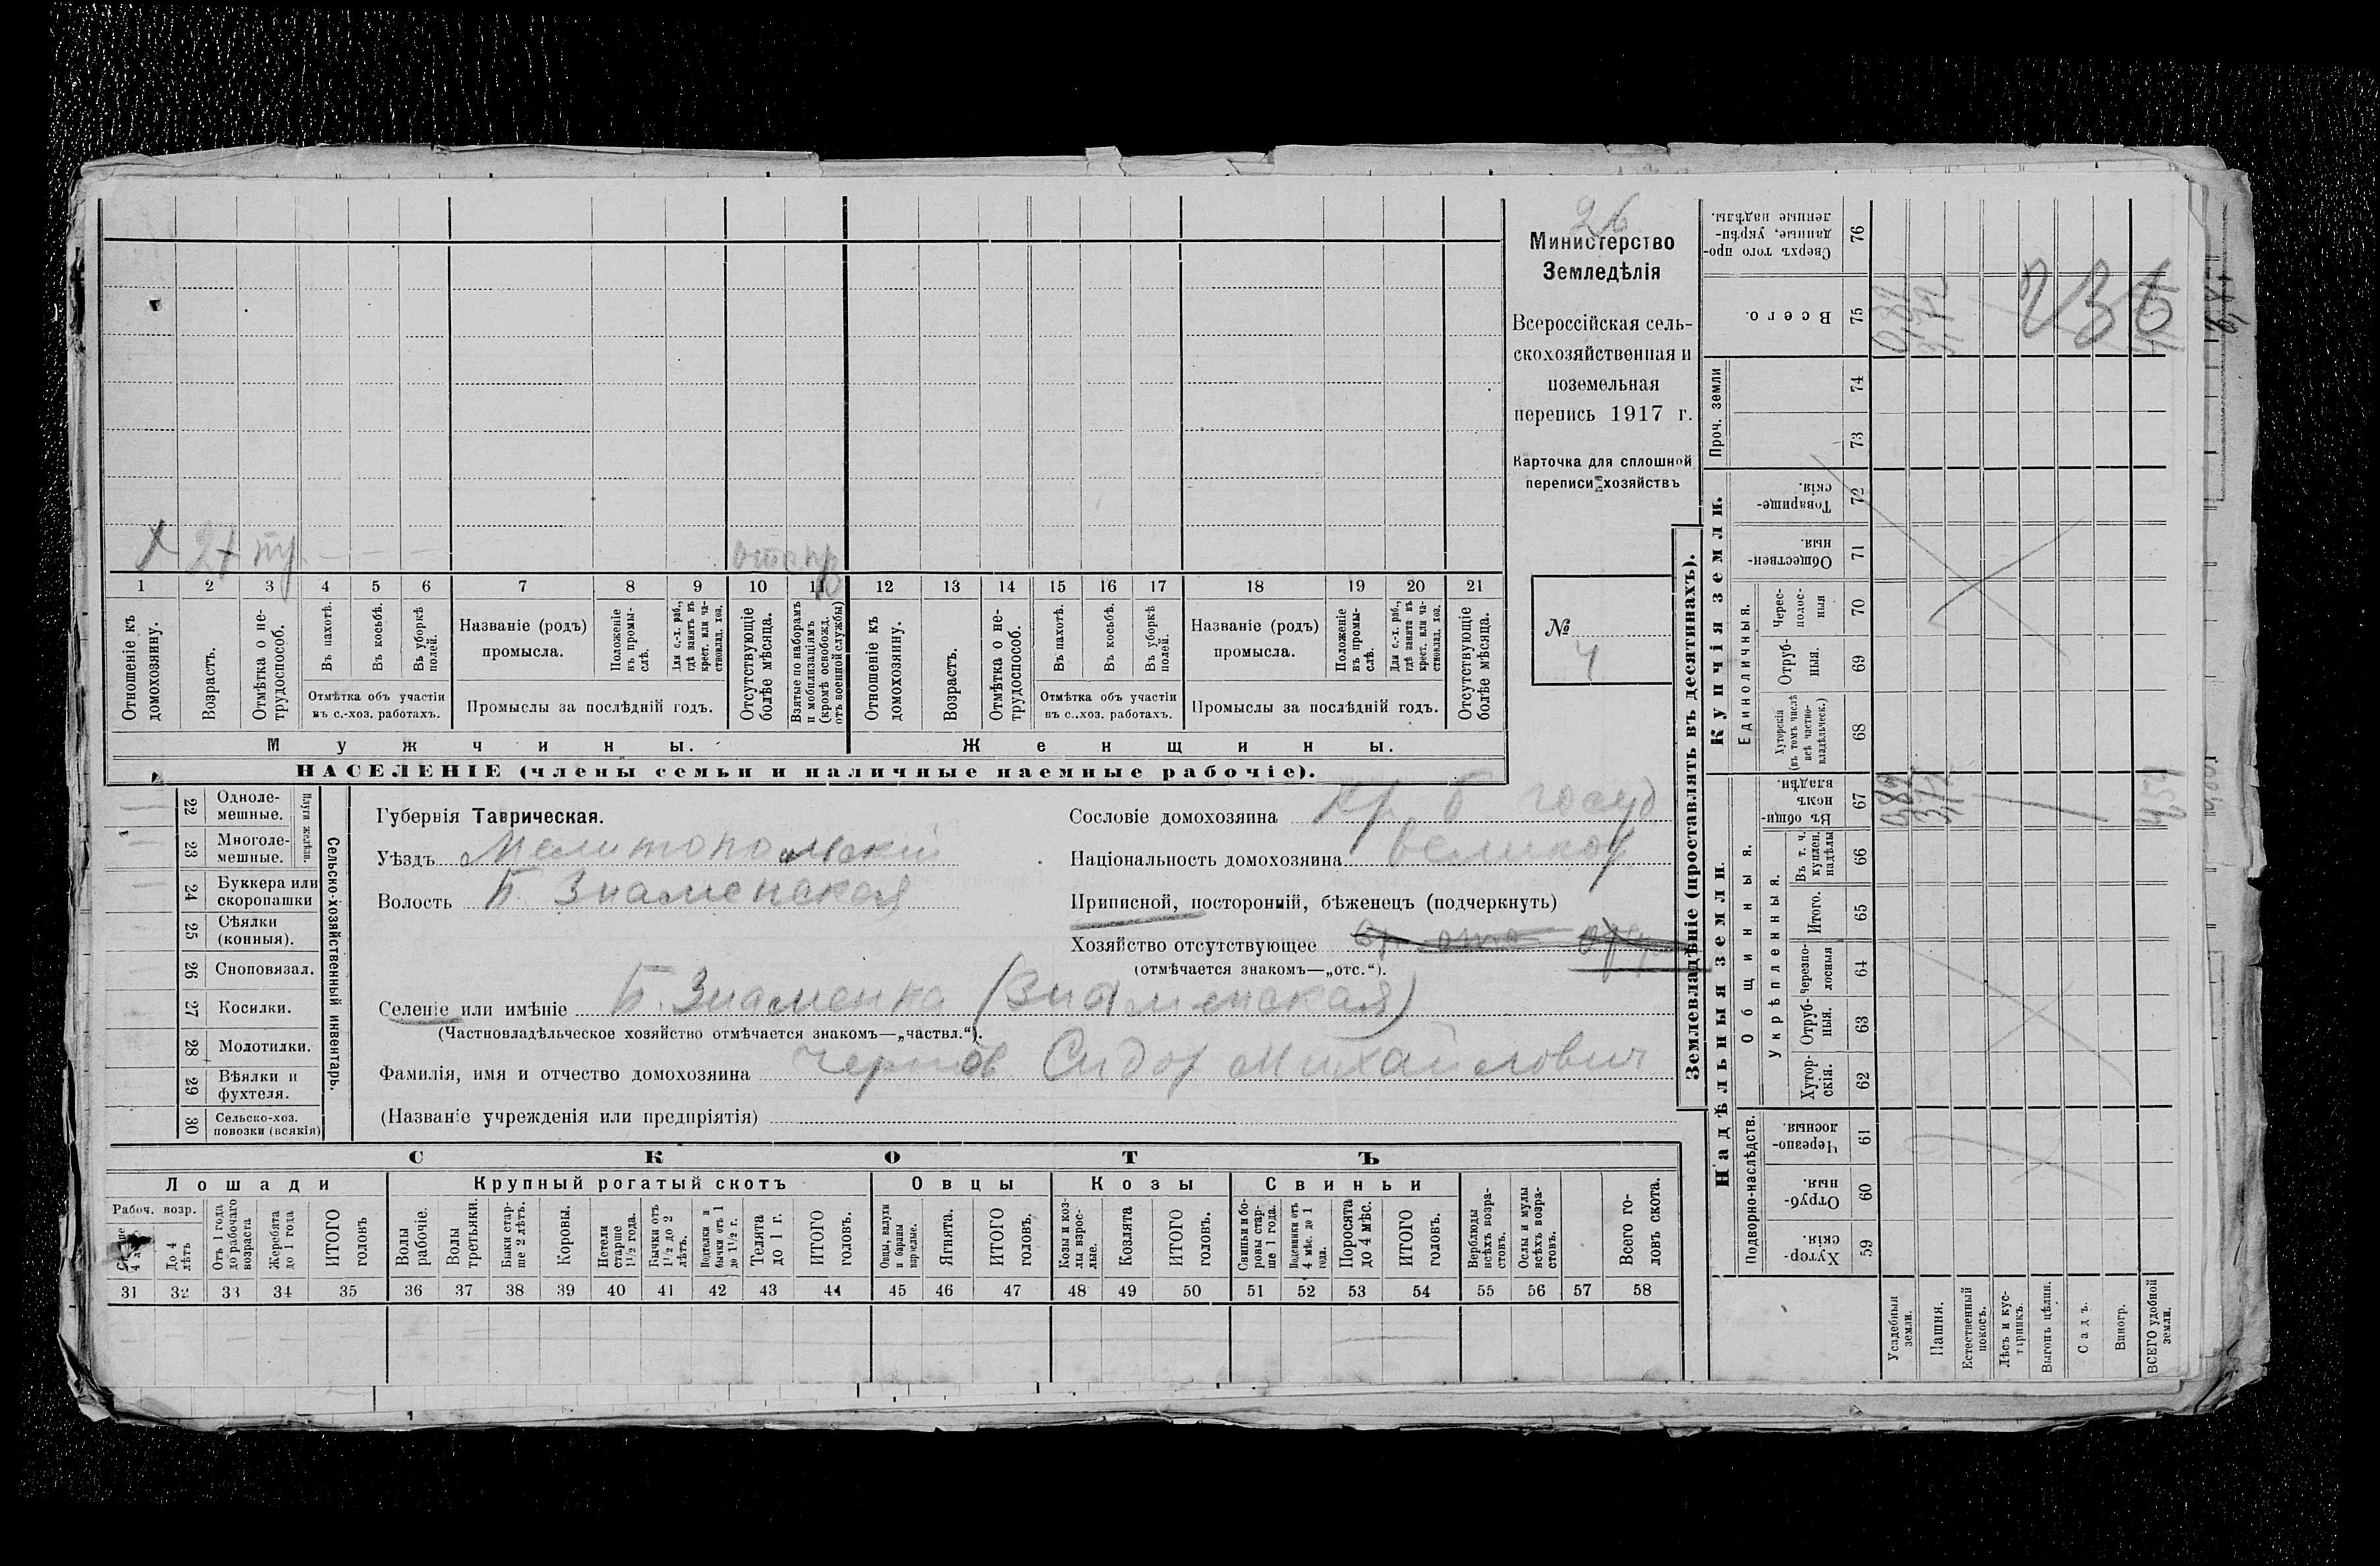 26
Министерство
Земледѣлія
Всероссійская сель-
скохозяйственная и
поземельная
перепись 1917 г.
Карточка для сплошной
переписи хозяйствъ
№
4
1 2 3 4 5 6 7 8 9 10 11 12 13 14 15 16 17 18 19 20 21
Отношеніе къ домохозяину.
Возрастъ.
Отмѣтка о не-трудоспособ.
Въ пахотѣ.
Въ косьбѣ.
Въ уборкѣ полей.
Отмѣтка объ участіи
въ с.-хоз. работахъ.
Названіе (родъ)
промысла.
Положеніе въ промы-слѣ.
Для с.-х. раб., гдѣ занятъ въ крест. или ча-стновлад. хоз.
Промыслы за послѣдній годъ.
Отсутствующіе болѣе мѣсяца.
Взятые по наборамъ и мобилизаціямъ (кромѣ освобожд. отъ военной службы)
Отношеніе къ домохозяину.
Возрастъ.
Отмѣтка о не-трудоспособ.
Въ пахотѣ.
Въ косьбѣ.
Въ уборкѣ полей.
Отмѣтка объ участіи
въ с..хоз. работахъ.
Названіе (родъ)
промысла.
Положеніе въ промы-слѣ.
Для с.-х. раб., гдѣ занята въ крест. или ча-стновлад. хоз.
Промыслы за послѣдній годъ.
Отсутствующіе болѣе мѣсяца.
Мужчины.
Женщины.
НАСЕЛЕНІЕ (члены семьи и наличные наемные рабочіе).
22 Одноле-мешные.
23 Многоле-мешные.
Плуги желѣзн.
24 Буккера или скоропашки
25 Сѣялки (конныя).
26 Сноповязал.
27 Косилки.
28 Молотилки.
29 Вѣялки и фухтеля.
30 Сельско-хоз. повозки (всякія)
Сельско-хозяйственный инвентарь.
Губернія Таврическая.
Уѣздъ Мелитопольскій
Волость Б. Знаменская
Сословіе домохозяина Кр. б. госуд
Національность домохозяина великор
Приписной, посторонній, бѣженецъ (подчеркнуть)
Хозяйство отсутствующее
(отмѣчается знакомъ—„отс.“).
Селеніе или имѣніе Б. Знаменка (Знаменская)
(Частновладѣльческое хозяйство отмѣчается знакомъ—„частвл.“).
Фамилія, имя и отчество домохозяина Чернов Сидор Михайлович
(Названіе учрежденія или предпріятія)
СКОТЪ
Лошади
Крупный рогатый скотъ
Овцы
Козы
Свиньи
Рабоч. возр.
До 4 лѣтъ
Отъ 1 года до рабочаго возраста
Жеребята до 1 года
ИТОГО головъ
Волы рабочіе.
Волы третьяки.
Быки стар-ше 2 лѣтъ.
Коровы.
Нетели старше 1½ года.
Бычки отъ 1½ до 2 лѣтъ.
Подтелки и бычки отъ 1 до 1½ г.
Телята до 1 г.
ИТОГО головъ.
Овцы, валухи и бараны взрослые.
Ягнята.
ИТОГО головъ.
Козы и коз-лы взрос-лые.
Козлята
ИТОГО головъ.
Свиньи и бо-ровы стар-ше 1 года.
Подсвинки отъ 4 мѣс. до 1 года.
Поросята до 4 мѣс.
ИТОГО головъ.
Верблюды всѣхъ возра-стовъ.
Ослы и мулы всѣхъ возра-стовъ.
Всего го-ловъ скота.
31 32 33 34 35 36 37 38 39 40 41 42 43 44 45 46 47 48 49 50 51 52 53 54 55 56 57 58
Землевладѣніе (проставлять въ десятинахъ).
Надѣльныя земли.
Купчія земли.
Проч. земли
Подворно-наслѣдств.
Общинныя.
Укрѣпленныя.
Единоличныя.
Сверхъ того про-данные, укрѣп-ленные надѣлы. 76
Всего. 75
74
73
Товарище-скія. 72
Обществен-ныя. 71
Черес-полос-ныя 70
Отруб-ныя. 69
Хуторскія (въ томъ числѣ всѣ частно-владѣльческ.) 68
Въ общин-номъ владѣн. 67
Въ т. ч. куплен. надѣлы 66
Итого. 65
Черезпо-лосныя 64
Отруб-ныя. 63
Хутор-скія. 62
Черезпо-лосныя. 61
Отруб-ныя. 60
Хутор-скія. 59
Усадебныя земли.
Пашня.
Естественный покосъ.
Лѣсъ и кус-тарникъ.
Выгонъ цѣлин.
Садъ.
Виногр.
ВСЕГО удобной земли.
236